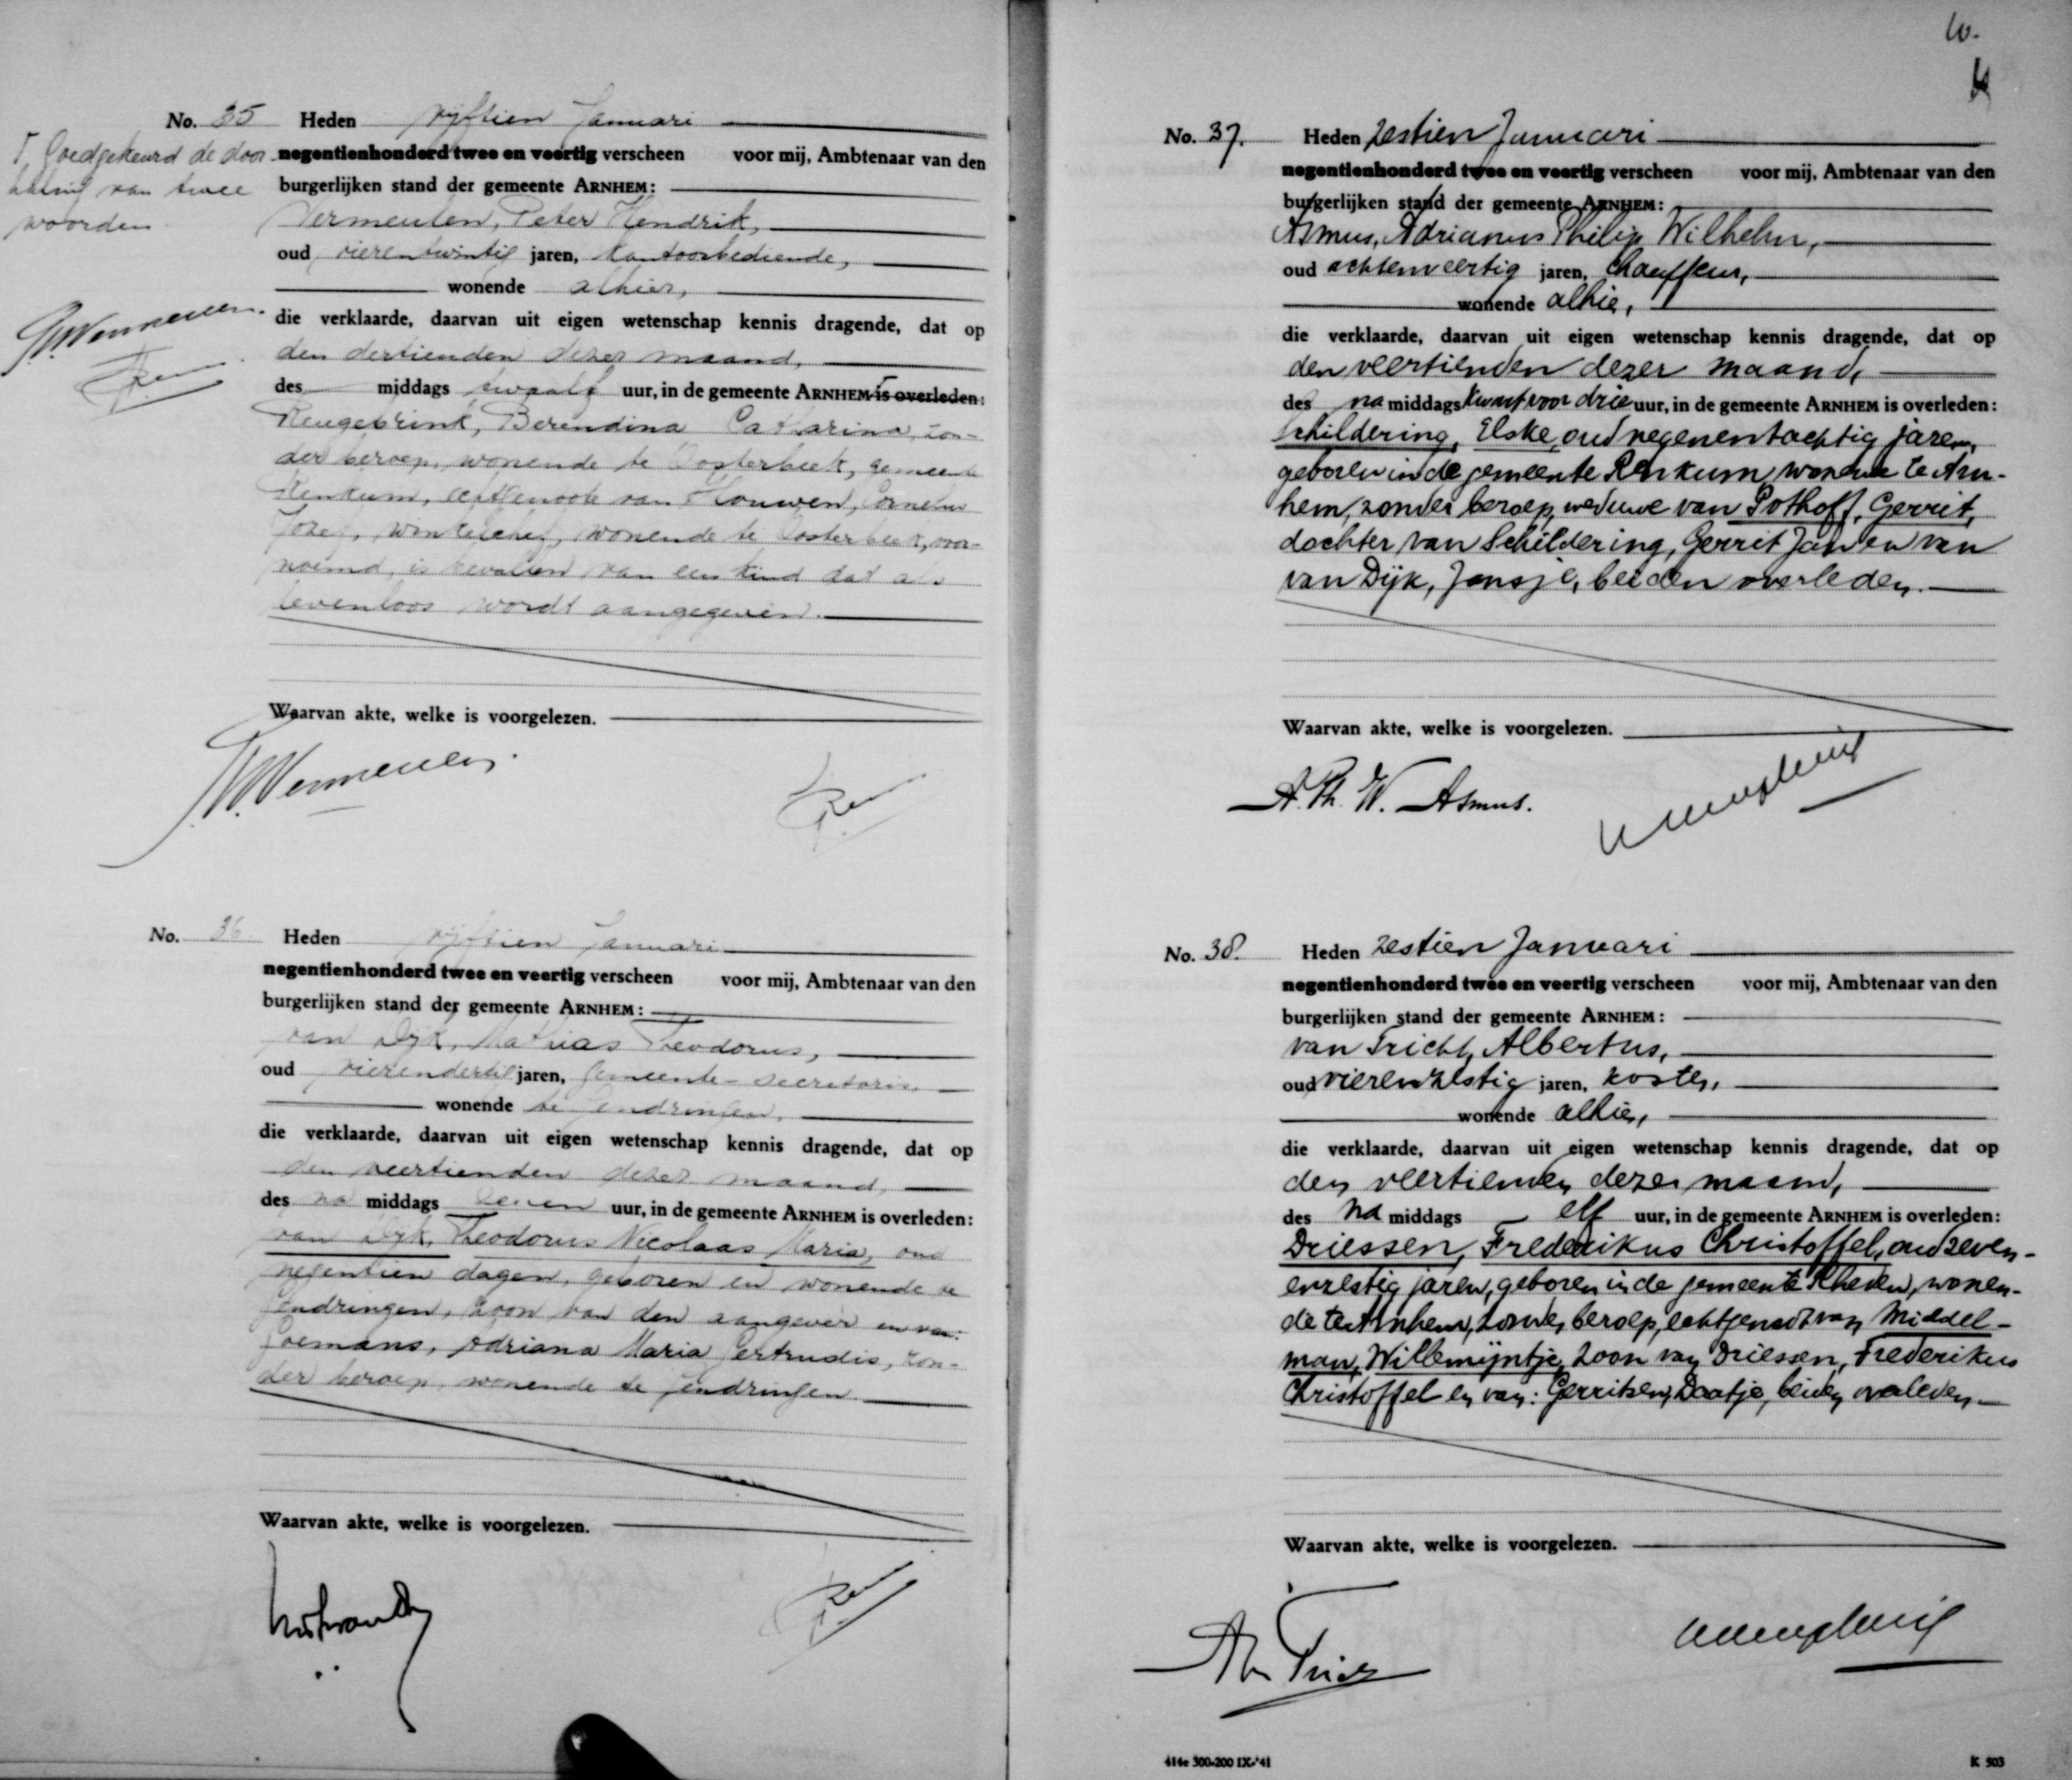 No. 35 Heden vijftien Januari
negentienhonderd twee en veertig verscheen voor mij, Ambtenaar van den
burgerlijken stand der gemeente ARNHEM:
Vermeulen, Peter Hendrik,
oud vierentwintig jaren, kantoorbediende,
wonende alhier,
die verklaarde, daarvan uit eigen wetenschap kennis dragende, dat op
den dertienden dezer maand,
des middags twaalf uur, in de gemeente ARNHEM is overleden:
Reugebrink, Berendina Catharina, zon-
der beroep, wonende te Oosterbeek, gemeente
Renkum, echtgenoote van Houwen, Cornelis
Jozef, winkelchef, wonende te Oosterbeek, voor-
noemd, is bevallen van een kind dat als
levenloos wordt aangegeven.
Waarvan akte, welke is voorgelezen.
Goedgekeurd de door-
haling van twee
woorden
No. 36 Heden vijftien Januari
negentienhonderd twee en veertig verscheen voor mij, Ambtenaar van den
burgerlijken stand der gemeente ARNHEM:
van Dijk, Mathias Theodorus,
oud vierendertig jaren, gemeente-secretaris,
wonende te Gendringen,
die verklaarde, daarvan uit eigen wetenschap kennis dragende, dat op
den veertienden dezer maand,
des na middags zeven uur, in de gemeente ARNHEM is overleden:
van Dijk, Theodorus Nicolaas Maria, oud
negentien dagen, geboren en wonende te
Gendringen, zoon van den aangever en van:
Goemans, Adriana Maria Gertrudis, zon-
der beroep, wonende te Gendringen.
Waarvan akte, welke is voorgelezen.
10.
No. 37. Heden zestien Januari
negentienhonderd twee en veertig verscheen voor mij, Ambtenaar van den
burgerlijken stand der gemeente ARNHEM:
Asmus, Adrianus Philip Wilhelm,
oud achtenveertig jaren, chauffeur,
wonende alhier,
die verklaarde, daarvan uit eigen wetenschap kennis dragende, dat op
den veertienden dezer maand,
des na middags kwart voor drie uur, in de gemeente ARNHEM is overleden:
Schildering, Elske, oud negenentachtig jaren,
geboren in de gemeente Renkum, wonende te Arn-
hem, zonder beroep, weduwe van Pothoff, Gerrit,
dochter van Schildering, Gerrit Jan en van
van Dijk, Jansje, beiden overleden.
Waarvan akte, welke is voorgelezen.
A. Ph. W. Asmus.
No. 38. Heden zestien Januari
negentienhonderd twee en veertig verscheen voor mij, Ambtenaar van den
burgerlijken stand der gemeente ARNHEM:
van Tricht, Albertus,
oud vierenzestig jaren, koster,
wonende alhier,
die verklaarde, daarvan uit eigen wetenschap kennis dragende, dat op
den veertienden dezer maand,
des na middags elf uur, in de gemeente ARNHEM is overleden:
Driessen, Frederikus Christoffel, oud zeven-
enzestig jaren, geboren in de gemeente Rheden, wonen-
de te Arnhem, zonder beroep, echtgenoot van Middel-
man, Willemijntje, zoon van Driessen, Frederikus
Christoffel en van: Gerritsen, Daatje, beiden overleden.
Waarvan akte, welke is voorgelezen.
414e 300-200 IX-'41 K 503